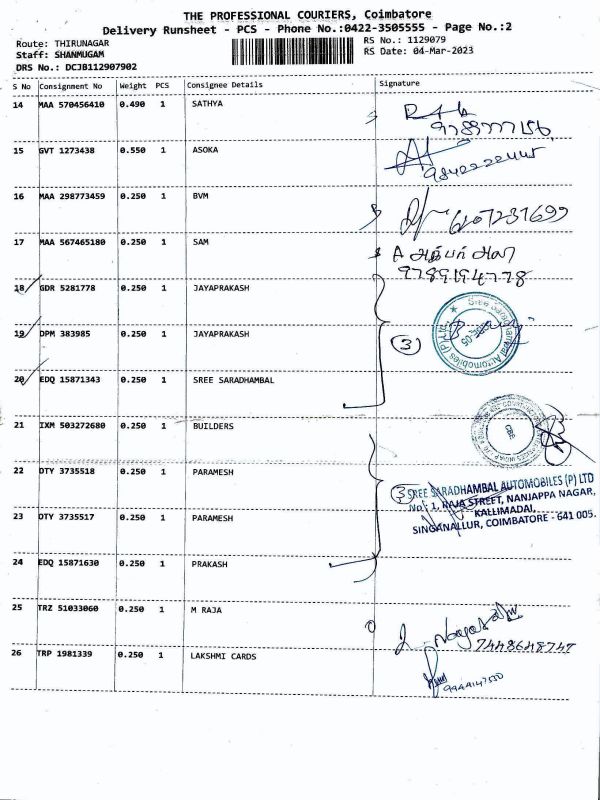 THE PROFESSIONAL COURIERS, Coimbatore
Delivery Runsheet - PCS - Phone No.:0422-3505555 - Page No.:2
Route: THIRUNAGAR
RS No.: 1129079
Staff: SHANMUGAM
RS Date: 04-Mar-2023
DRS No.: DCJB112907902
S No Consignment No Weight PCS Consignee Details Signature
14 MAA 570456410 0.490 1 SATHYA
15 GVT 1273438 0.550 1 ASOKA
16 MAA 298773459 0.250 1 BVM
17 MAA 567465180 0.250 1 SAM
9789194778
18 GDR 5281778 0.250 1 JAYAPRAKASH
19 DPM 383985 0.250 1 JAYAPRAKASH
3
20 EDQ 15871343 0.250 1 SREE SARADHAMBAL
21 IXM 503272680 0.250 1 BUILDERS
22 OTY 3735518 0.250 1 PARAMESH
3
SREE SARADHAMBAL AUTOMOBILES (P) LTD
No: 1, RAJA STREET, NANJAPPA NAGAR,
KALLIMADAI,
SINGANALLUR, COIMBATORE - 641 005.
23 OTY 3735517 0.250 1 PARAMESH
24 EDQ 15871630 0.250 1 PRAKASH
25 TRZ 51033060 0.250 1 M RAJA
7448648747
26 TRP 1981339 0.250 1 LAKSHMI CARDS